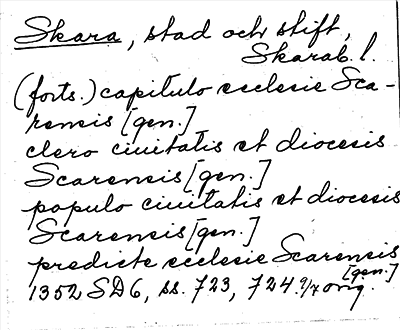 Skara, stad och stift,
Skarab. l.
(forts.) capitulo ecclesie Sca-
rensis [gen.]
clero ciuitatis et diocesis
Scarensis [gen.]
populo ciuitatis et diocesis
Scarensis [gen.]
predicte ecclesie Scarensis
[gen.]
1352 SD6, ss. 723, 724. 9/4 orig.